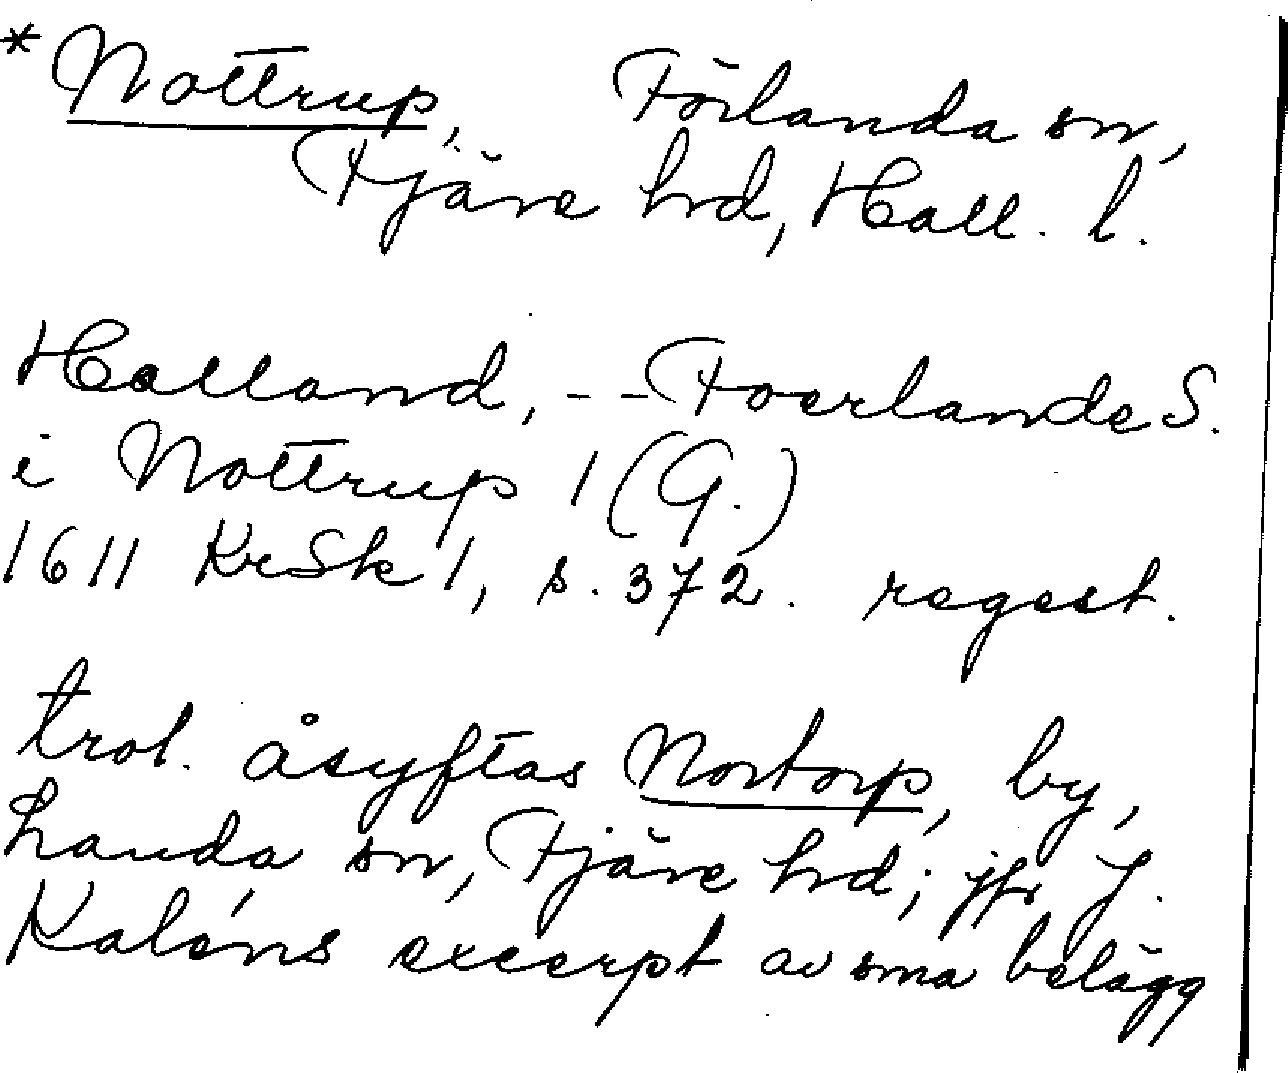 *Nottrup, Förlanda sn,
Fjäre hrd, Hall. l.
Halland, -- Foerlande S.
i Nottrup 1 (G.)
1611 KrSk 1, s. 372. regest.
trol. åsyftas Nortorp, by,
Landa sn, Fjäre hrd; jfr J.
Kaléns excerpt av sma belägg